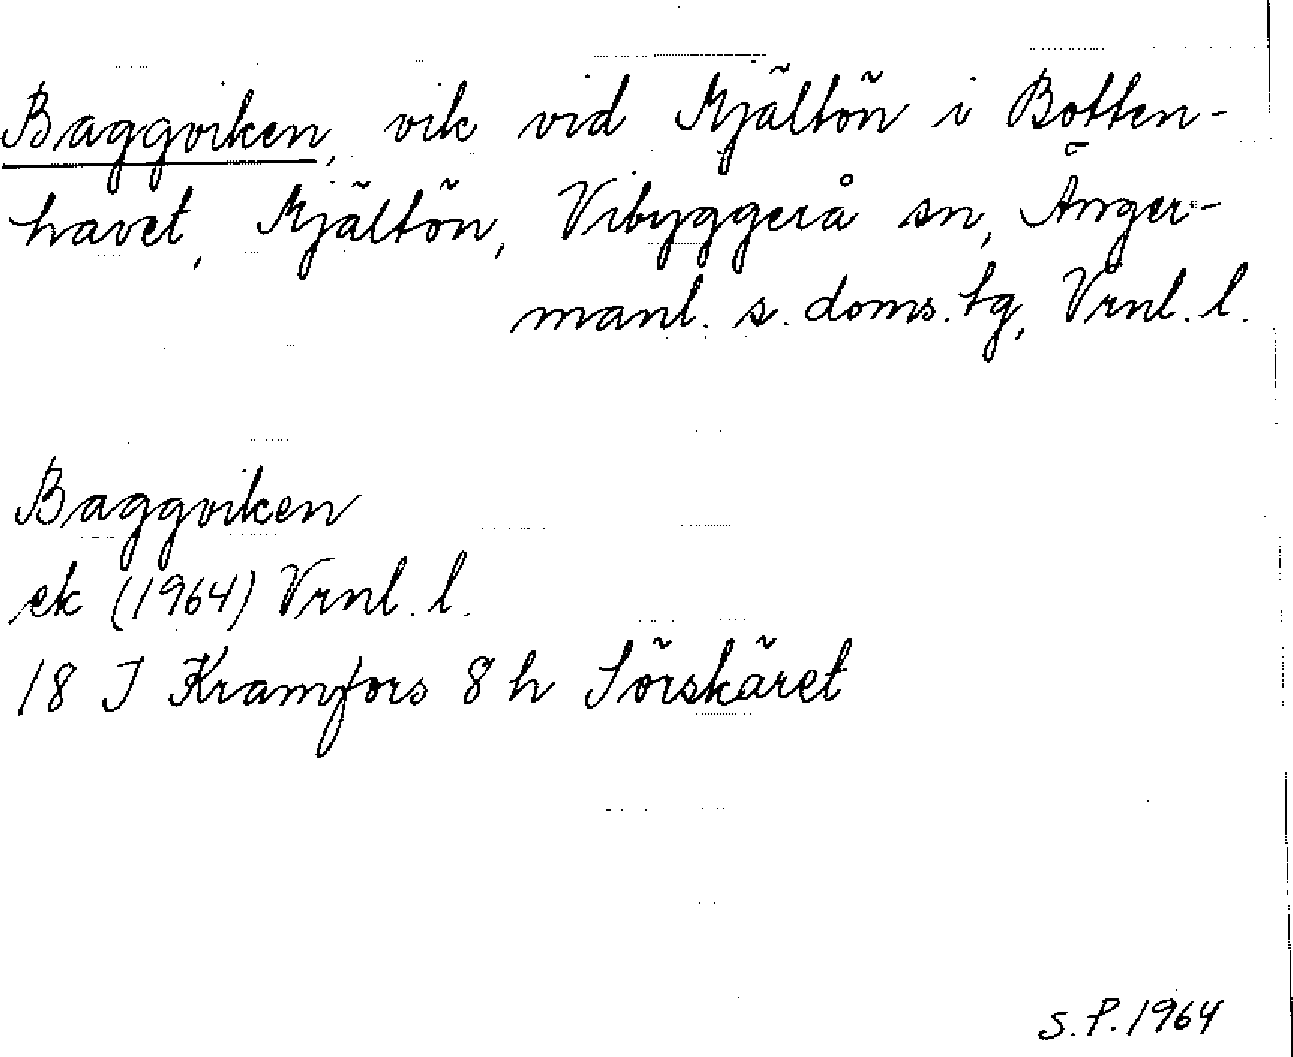 Baggviken, vik vid Mjältön i Botten-
havet, Mjältön, Vibyggerå sn, Ånger-
manl. s. doms. tg, Vrnl. l.
Baggviken
ek (1964) Vrnl. l.
18 I Kramfors 8 h Sörskäret
S.P. 1964